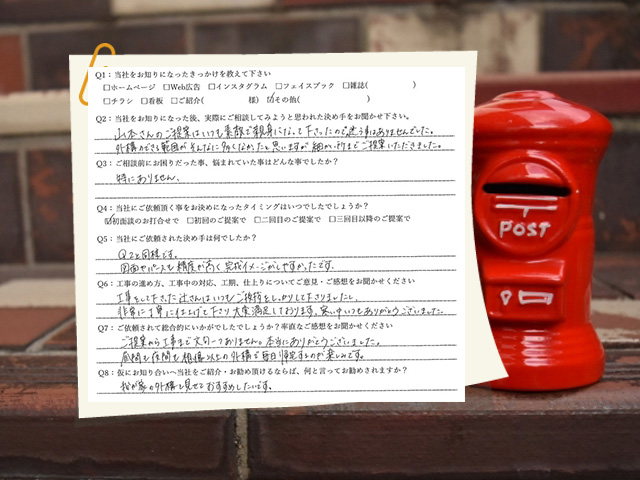 Q1：当社をお知りになったきっかけを教えて下さい
□ホームページ □Web広告 □インスタグラム □フェイスブック □雑誌( )
□チラシ □看板 □ご紹介( 様) ☑その他( )
Q2：当社をお知りになった後、実際にご相談してみようと思われた決め手をお聞かせ下さい。
山本さんのご提案はいつも素敵で親身になって下さったので迷う事はありませんでした。
外構ができる範囲がそんなに多くなかったと思いますが細かい所までご提案いただきました。
Q3：ご相談前にお困りだった事、悩まれていた事はどんな事でしたか？
特にありません。
Q4：当社にご依頼頂く事をお決めになったタイミングはいつでしたでしょうか？
☑初面談のお打合せで □初回のご提案で □二回目のご提案で □三回目以降のご提案で
Q5：当社にご依頼された決め手は何でしたか？
Q2と同様です。
図面やパースも精度が高く完成イメージがしやすかったです。
Q6：工事の進め方、工事中の対応、工期、仕上りについてご意見・ご感想をお聞かせください
工事をして下さった辻さんはいつもご挨拶をしっかりして下さいましたし、
非常に丁寧に仕上げて下さり大変満足しております。寒い中いつもありがとうございました。
Q7：ご依頼されて総合的にいかがでしたでしょうか？率直なご感想をお聞かせください
ご提案から工事まで文句一つありません。本当にありがとうございました。
昼間も夜間も想像以上の外構で毎日帰宅するのが楽しみです。
Q8：仮にお知り合いへ当社をご紹介・お勧め頂けるならば、何と言ってお勧めされますか？
我が家の外構を見せておすすめしたいです。
POST